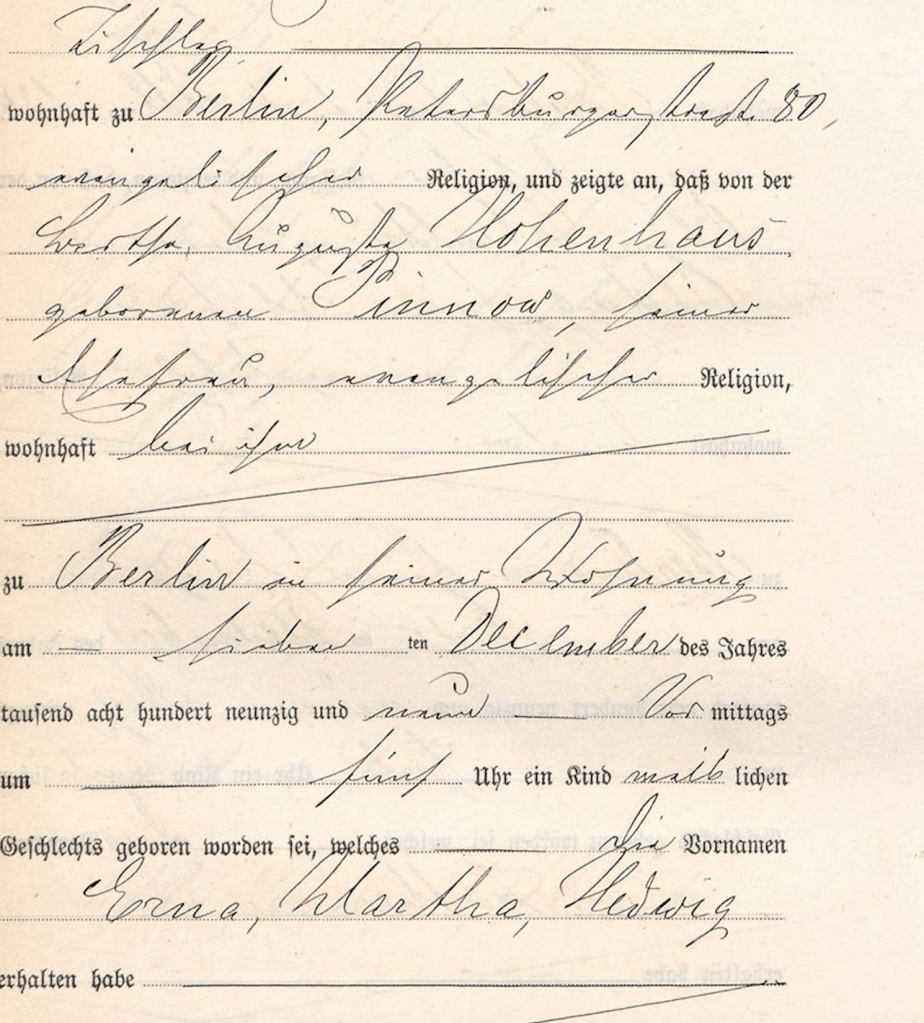 Tischler
wohnhaft zu Berlin, Petersburgerstraße 80,
evangelischer Religion, und zeigte an, daß von der
Bertha, Auguste Hohenhaus
geborenen Pinnow, seiner
Ehefrau, evangelischer Religion,
wohnhaft bei ihm
zu Berlin in seiner Wohnung
am sieben ten December des Jahres
tausend acht hundert neunzig und neun Vor mittags
um fünf Uhr ein Kind weib lichen
Geschlechts geboren worden sei, welches die Vornamen
Erna, Martha, Hedwig
erhalten habe